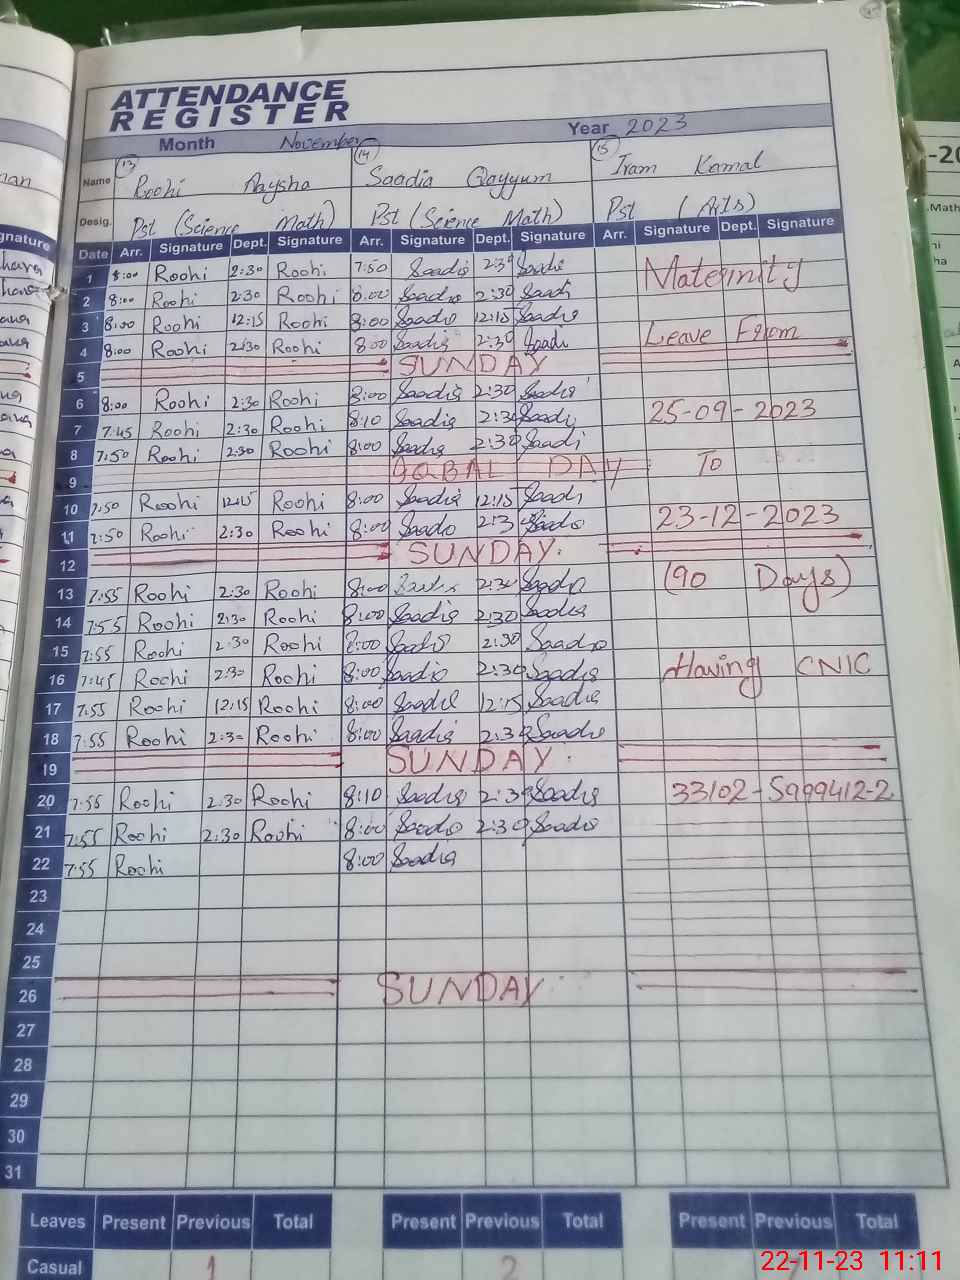 ATTENDANCE
REGISTER
Month November Year 2023
Name 13 Roohi Aaysha 14 Saadia Qayyum 15 Iram Kamal
Desig. Pst (Science Math) Pst (Science Math) Pst (Arts)
Date Arr. Signature Dept. Signature Arr. Signature Dept. Signature Arr. Signature Dept. Signature
1 8:00 Roohi 2:30 Roohi 7:50 Saadia 2:30 Saadia Maternity
2 8:00 Roohi 2:30 Roohi 8:00 Saadia 2:30 Saadi
3 8:00 Roohi 12:15 Roohi 8:00 Saadia 12:15 Saadia Leave From
4 8:00 Roohi 2:30 Roohi 8:00 Saadia 2:30 Saadi
5 SUNDAY
6 8:00 Roohi 2:30 Roohi 8:00 Saadia 2:30 Saadia 25-09-2023
7 7:45 Roohi 2:30 Roohi 8:10 Saadia 2:30 Saadi
8 7:50 Roohi 2:30 Roohi 8:00 Saadia 2:30 Saadi To
9 IQBAL DAY
10 7:50 Roohi 12:15 Roohi 8:00 Saadia 12:15 Saadi 23-12-2023
11 7:50 Roohi 2:30 Roohi 8:00 Saadia 2:3 Saadia
12 SUNDAY.
13 7:55 Roohi 2:30 Roohi 8:00 Saadia 2:30 Saadia (90 Days)
14 7:55 Roohi 2:30 Roohi 8:00 Saadia 2:30 Saadia
15 7:55 Roohi 2:30 Roohi 8:00 Saadia 2:30 Saadia
16 7:45 Roohi 2:30 Roohi 8:00 Saadia 2:30 Saadia Having CNIC
17 7:55 Roohi 12:15 Roohi 8:00 Saadia 12:15 Saadia
18 7:55 Roohi 2:30 Roohi 8:00 Saadia 2:30 Saadia
19 SUNDAY.
20 7:55 Roohi 2:30 Roohi 8:10 Saadia 2:30 Saadia 33102-5999412-2
21 7:55 Roohi 2:30 Roohi 8:00 Saadia 2:30 Saadia
22 7:55 Roohi 8:00 Saadia
23
24
25
26 SUNDAY
27
28
29
30
31
Leaves Present Previous Total Present Previous Total Present Previous Total
Casual 1 2
22-11-23 11:11